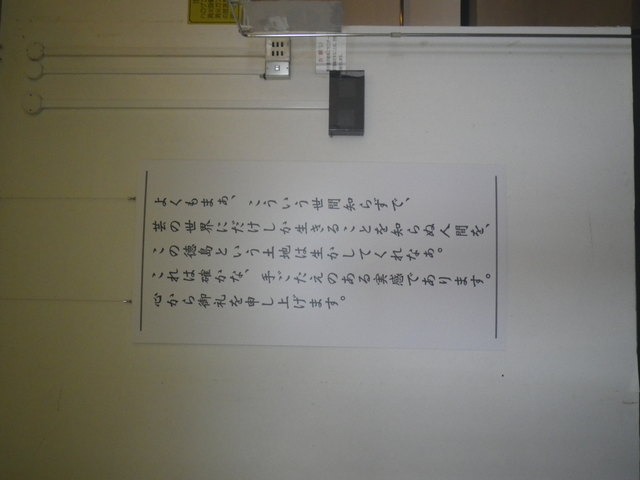 よくもまぁ、こういう世間知らずで、
芸の世界にだけしか生きることを知らぬ人間を、
この徳島という土地は生かしてくれなぁ。
これは確かな、手ごたえのある実感であります。
心から御礼を申し上げます。